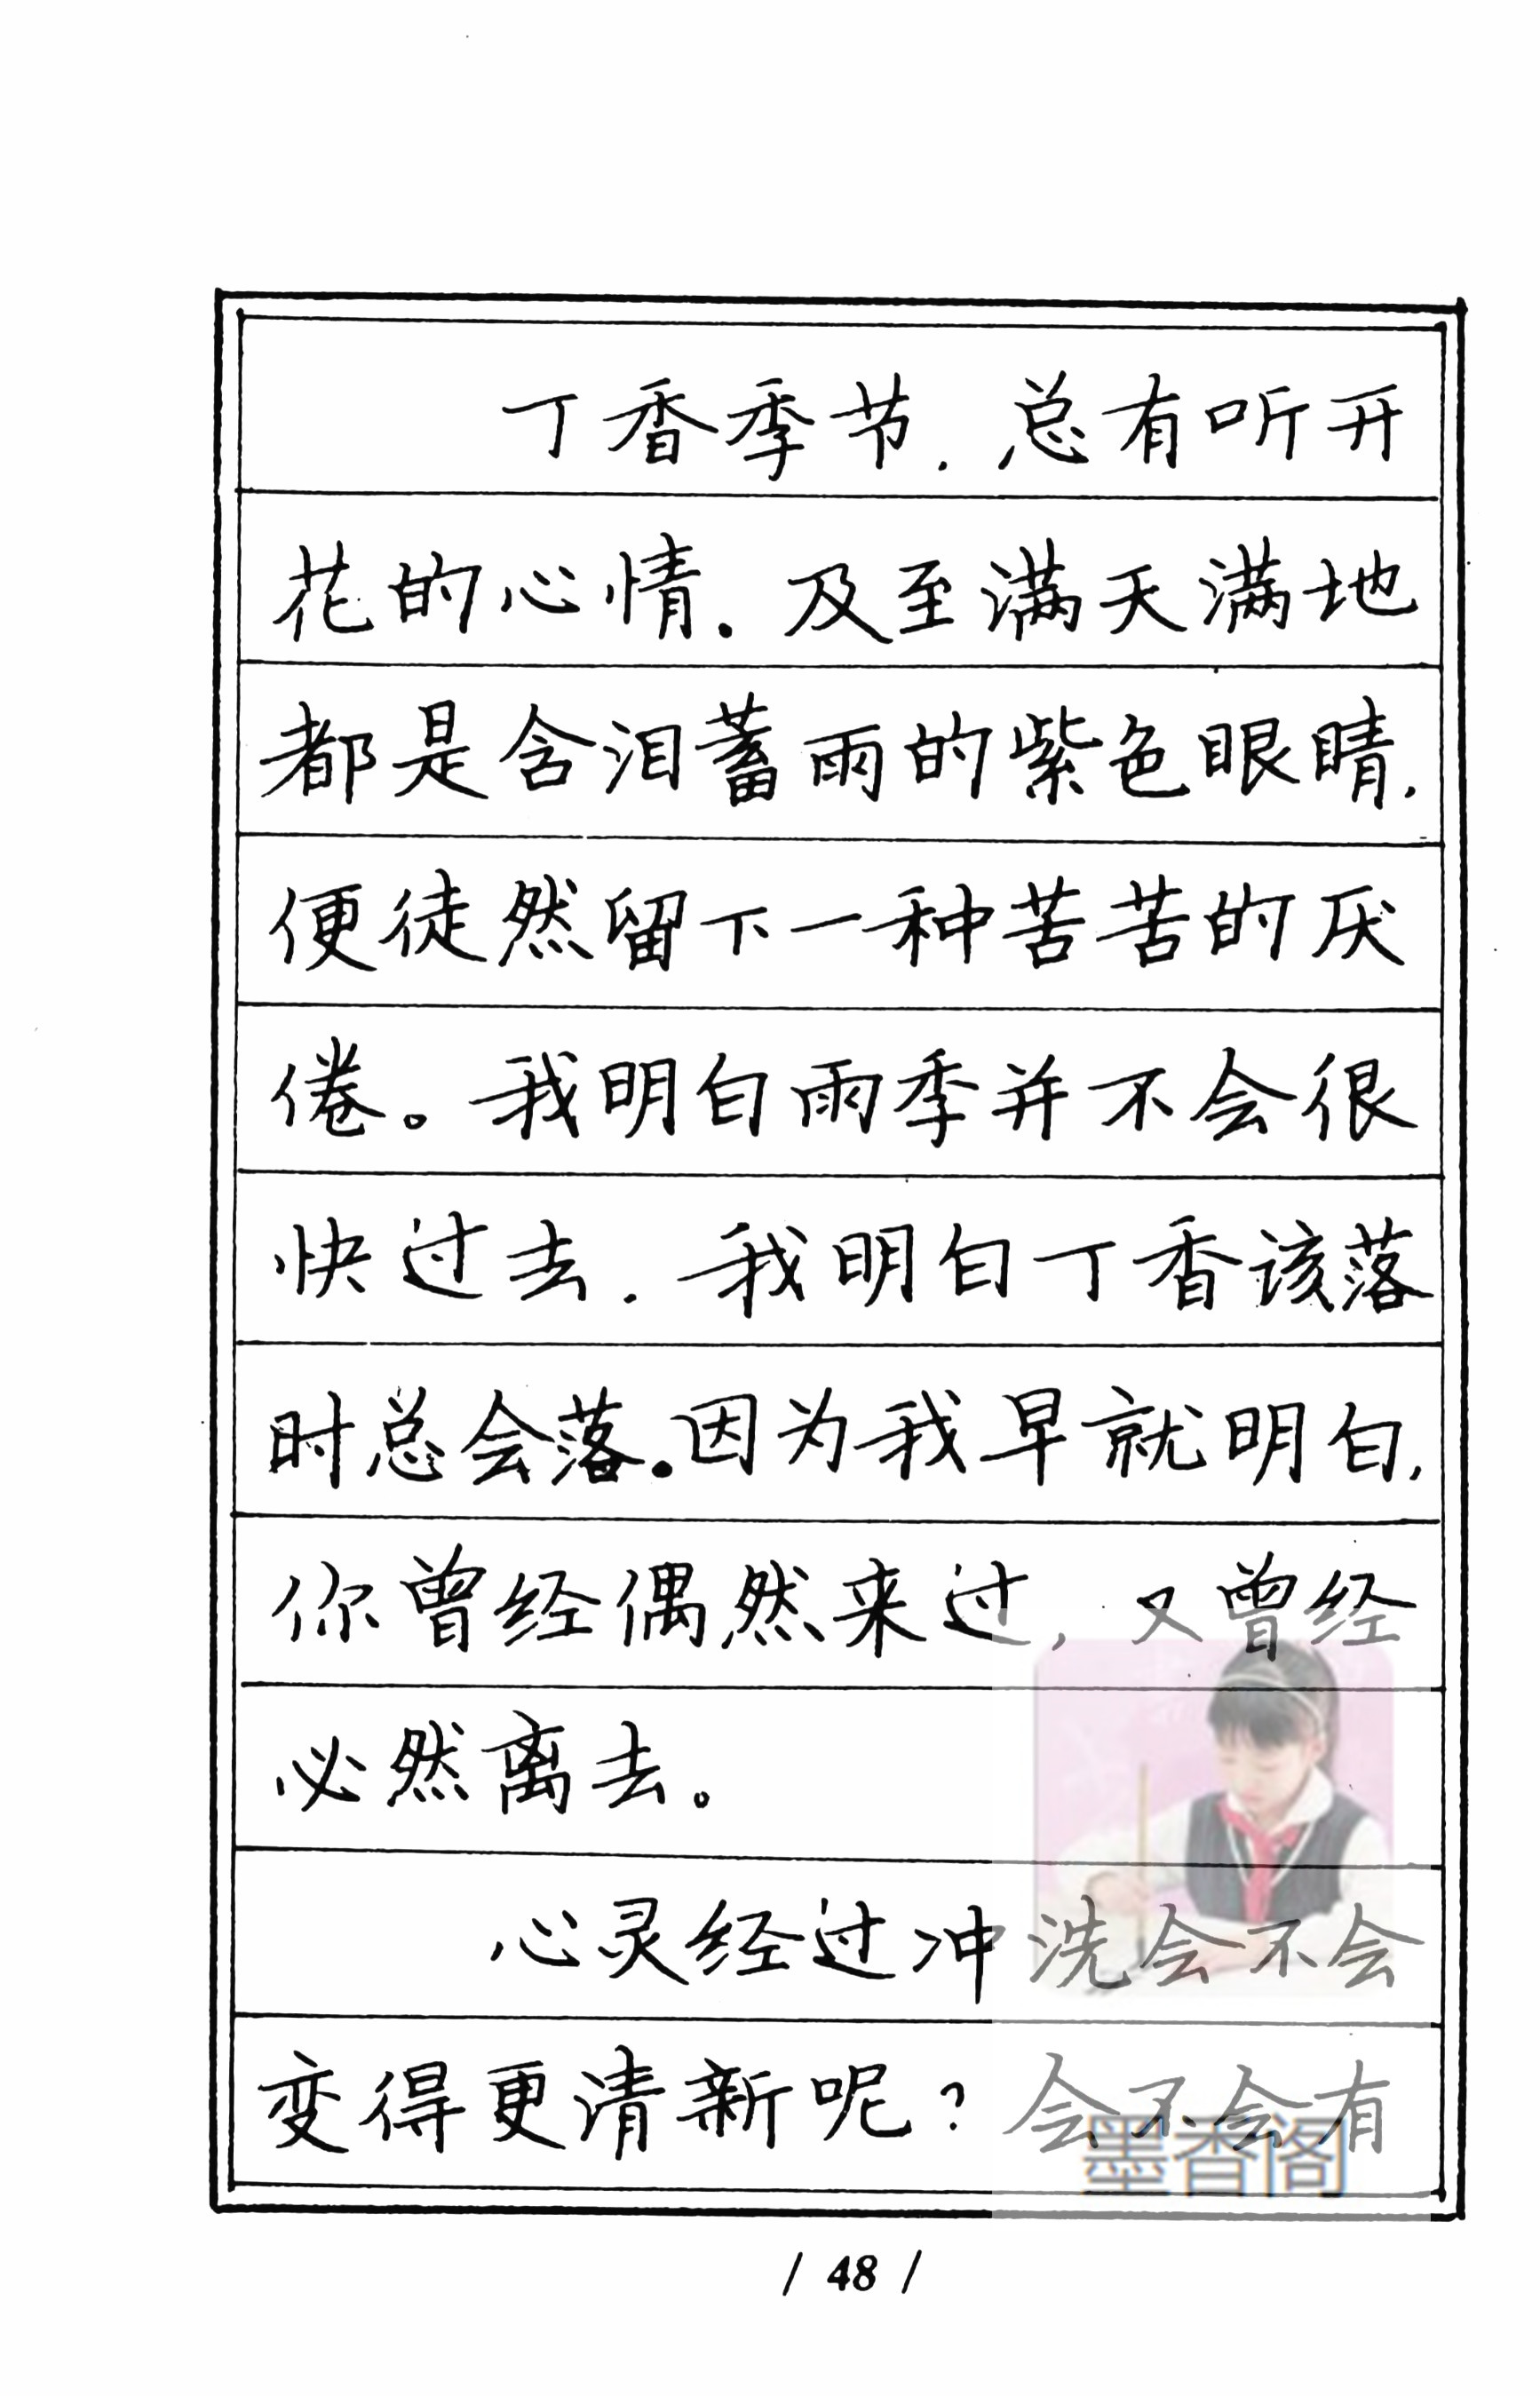 丁香季节，总有听开
花的心情。及至满天满地
都是含泪蓄雨的紫色眼睛，
便徒然留下一种苦苦的厌
倦。我明白雨季并不会很
快过去．我明白丁香该落
时总会落。因为我早就明白，
你曾经偶然来过，又曾经
必然离去。
心灵经过冲洗会不会
变得更清新呢？会不会有
墨香阁
/ 48 /